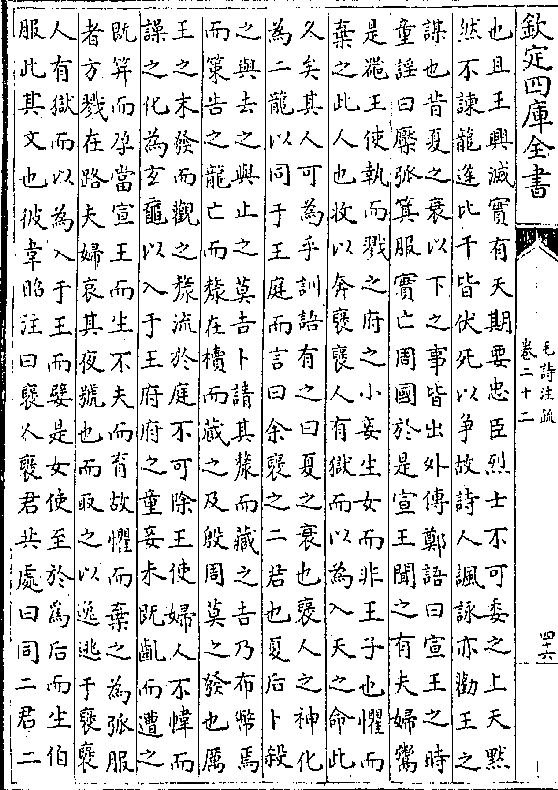 欽定四庫全書
毛詩注疏
卷二十二
四六
也且王興滅實有天期要忠臣烈士不可委之上天黙
然不諫龍逢比干皆伏死以争故詩人諷詠亦勸王之
謀也昔夏之衰以下之事皆出外傳鄭語曰宣王之時
童謡曰檿弧箕服實亡周國於是宣王聞之有夫婦鬻
是器王使執而戮之府之小妾生女而非王子也懼而
棄之此人也收以奔褒褒人有獄而以為入天之命此
久矣其人可為乎訓語有之曰夏之衰也褒人之神化
為二龍以同于王庭而言曰余褒之二君也夏后卜殺
之與去之與止之莫吉卜請其漦而藏之吉乃布幣焉
而策告之龍亡而漦在櫝而藏之及殷周莫之發也厲
王之末發而觀之漦流於庭不可除王使婦人不幃而
譟之化為玄黿以入于王府府之童妾未既齓而遭之
既笄而孕當宣王而生不夫而育故懼而棄之為弧服
者方戮在路夫婦哀其夜號也而取之以逸逃于褒褒
人有獄而以為入于王而嬖是女使至於為后而生伯
服此其文也彼韋昭注曰褒人褒君共處曰同二君二